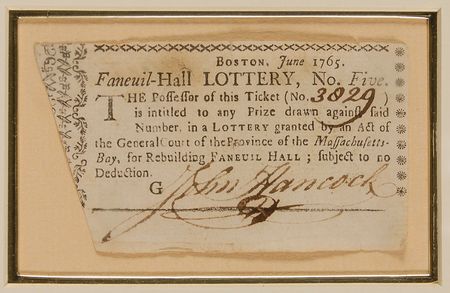 BOSTON, June 1765.
Faneuil-Hall LOTTERY, No. Five.
THE Possessor of this Ticket (No. 3829)
is intitled to any Prize drawn against said
Number, in a LOTTERY granted by an Act of
the General Court of the Province of the Massachusetts-
Bay, for Rebuilding FANEUIL HALL; subject to no
Deduction.
G John Hancock